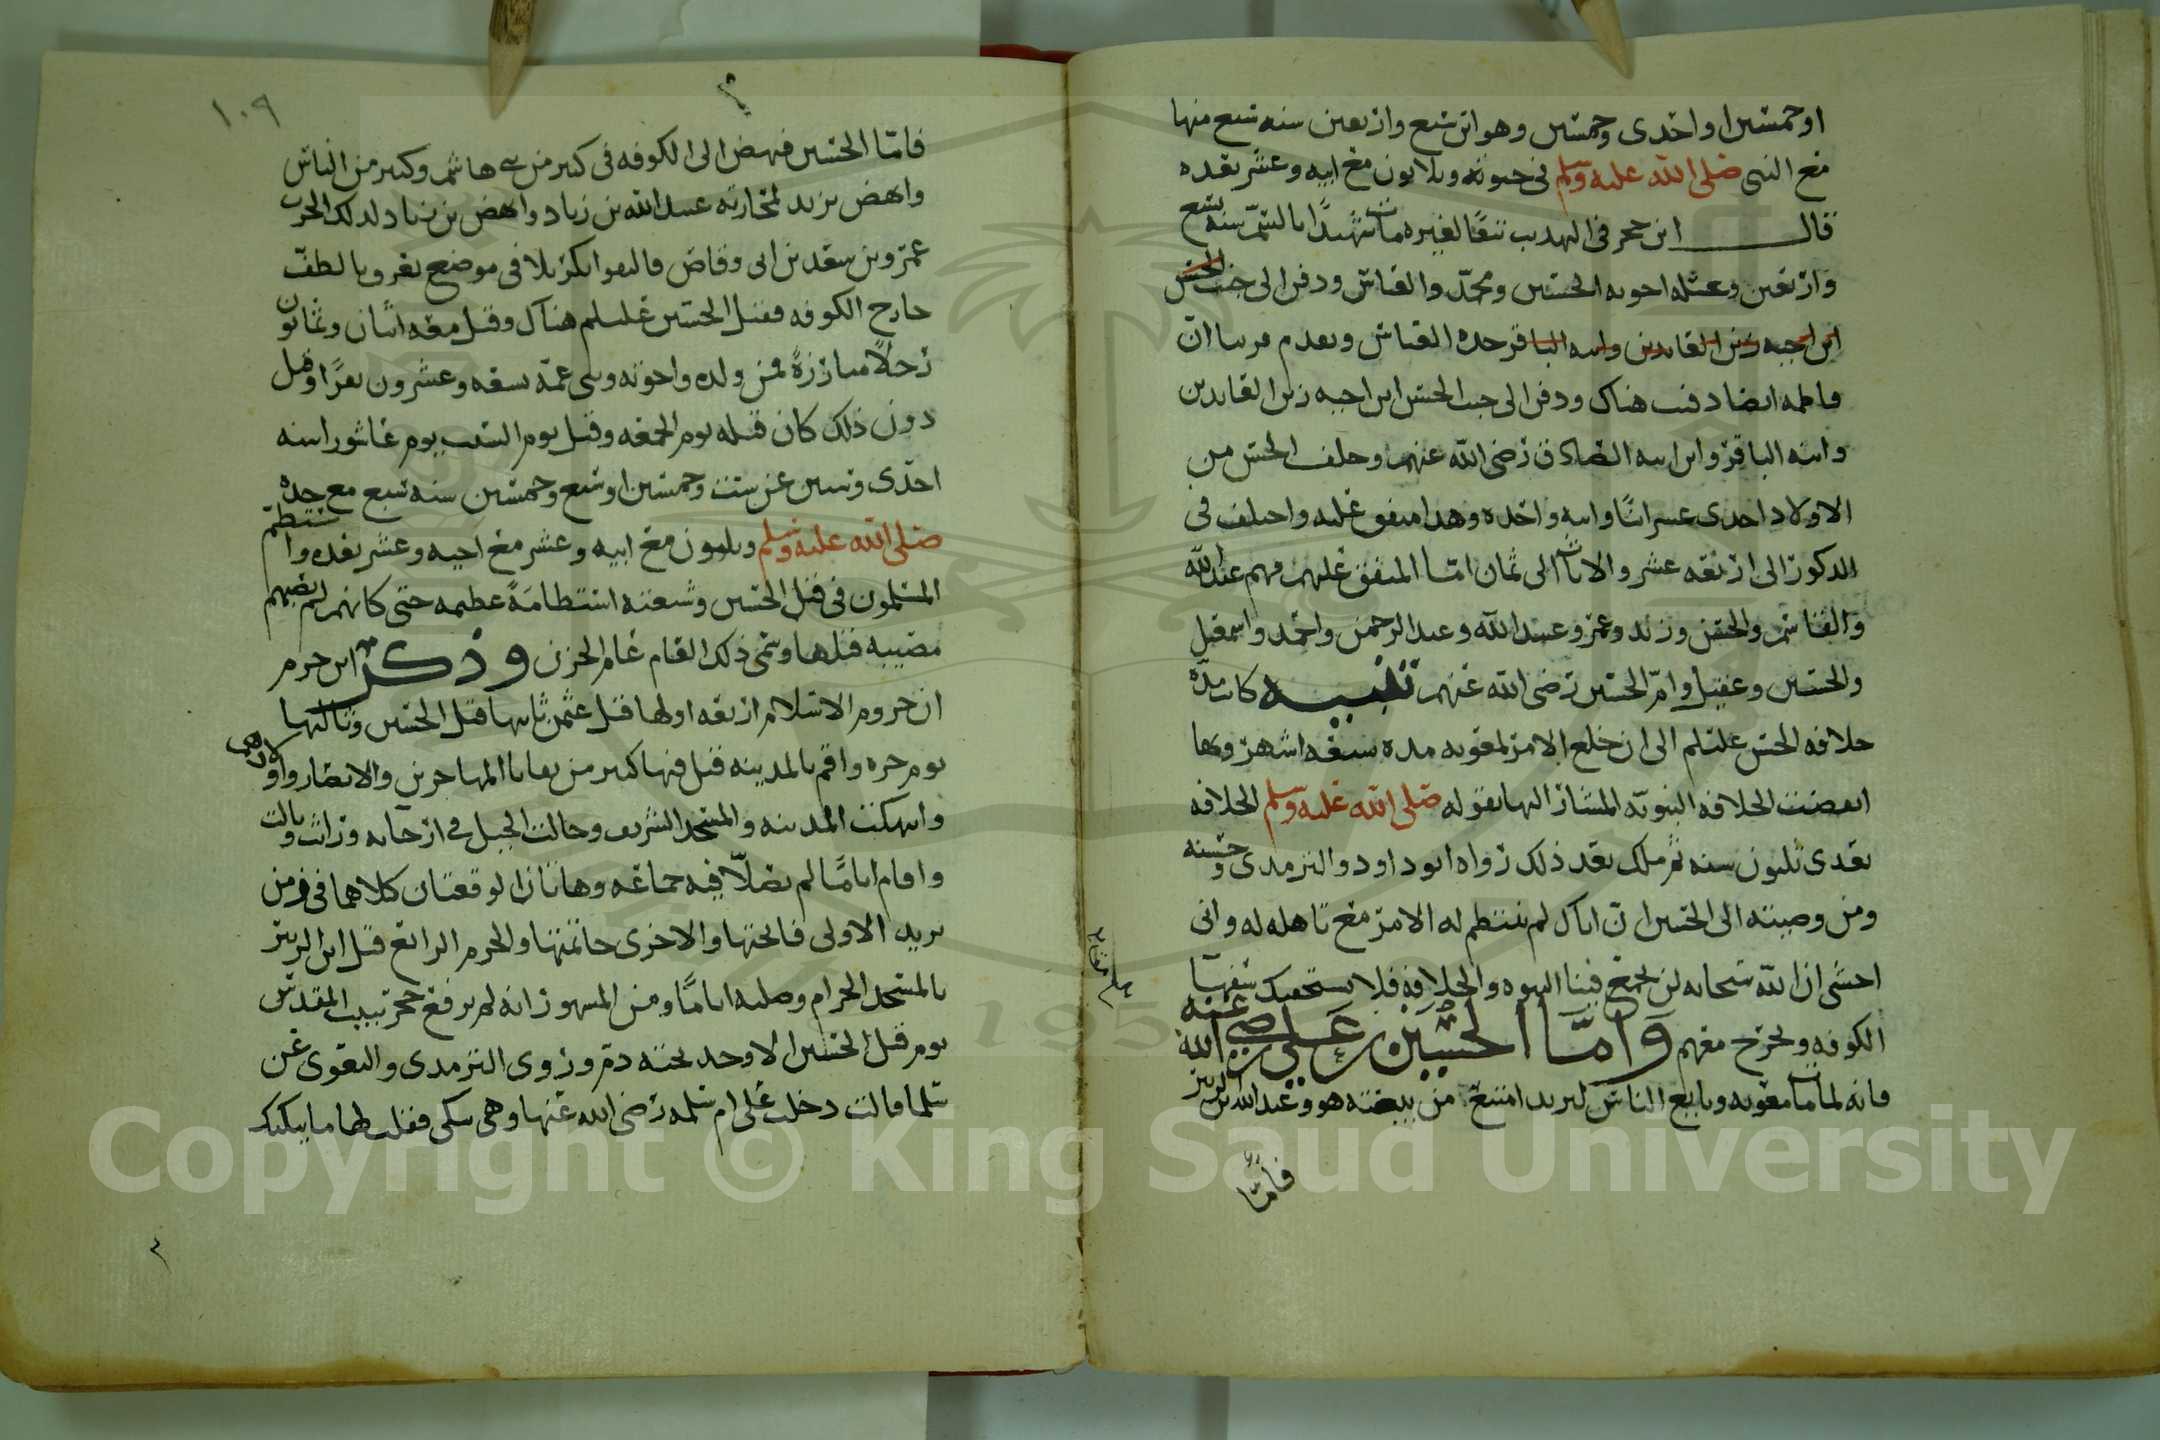 اوخمسين او احدى وخمسين وهو ابن سبع واربعين سنه سبع منها
مع النبي صلى الله عليه وسلم في حيوته وثلاثون مع ابيه وعشر بعده
قال ابن حجر في التهذيب تبعًا لغيره مات شهيدًا بالسم سنه تسع
واربعين وغسله اخوته الحسين ومحمد والعباس ودفن الى جنب الحسن
ابن اخيه زين العابدين وابنه الباقر جده العباس وتقدم قريبا ان
فاطمه ايضا دفنت هناك ودفن الى جنب الحسن ابن اخيه زين العابدين
وابنه الباقر وابن ابنه الصادق رضى الله عنهم وخلف الحسن من
الاولاد احدى عشر ابنًا وابنه واحده وهذا متفق عليه واختلف في
الذكور الى اربعه عشر والاناث الى ثمان امّا المتفق عليهم فهم عبد الله
والقاسم والحسن وزيد وعمرو عبيد الله وعبد الرحمن واحمد واسمعيل
والحسين وعقيل وامّ الحسين رضى الله عنهم تنبيه كانت مدّة
خلافه الحسن عليلم الى ان خلع الامر لمعويه مده سبعه اشهر وبها
انقضت الخلافه النبويّه المشار اليها بقوله صلى الله عليه وسلم الخلافه
بعدى ثلثون سنه ثم ملك بعد ذلك رواه ابو داود والترمدى وحسنه
ومن وصيته الى الحسين ان اباك لم ينتظم له الامر مع تاهله له وانى
اخشى ان الله سبحانه لن يجمع فينا النبوه والخلافه فلا يستخفنك سفهآ
الكوفه ويخرج معهم وامّا الحسين بن علي رضي الله عنه
فانه لما مات معويه وبايع الناس ليزيد امتنع من بيعته هو وعبد الله بن الزبير
فامّا
بلغ مقابله
١٠٩
فامّا الحسين فنهض الى الكوفه في كثير من بني هاشم وكثير من الناس
وانهض يزيد لمحاربته عبيد الله بن زياد وانهض بن زياد لذلك الحرب
عمرو بن سعد بن ابى وقاص فالتقوا بكربلا في موضع يعرف بالطفّ
خارج الكوفه فقتل الحسين عليلم هناك وقتل معه اثنان وثمانون
رجلًا مبارزةً فمن ولده واخوته وبنى عمّه سبعه وعشرون نفرًا وقيل
دون ذلك كان قتله يوم الجمعه وقيل يوم السبت يوم عاشورا سنه
احدى وستين عن ست وخمسين او سبع وخمسين سنه سبع مع جده
صلى الله عليه وسلم وثلثون مع ابيه وعشر مع اخيه وعشر بعده واستطمّ
المسلمون في قتل الحسين وشعته استطامةً عظيمه حتى كانهم لم تصبهم
مصيبه قبلها وسمى ذلك العام عام الحزن وذكر ابن حزم
ان خروم الاسلام اربعه اولها قتل عثمن ثانيها قتل الحسين وثالثها
يوم حره واقم بالمدينه قتل فيها كثير من بقايا المهاجرين والانصار واولادهم
وانهكت المدينه والمسجد الشريف وجالت الخيل في ارجايه وراثت وبالت
واقام ايامًا لم يصلّا فيه جماعه وهاتان الوقعتان كلاهما في زمن
يزيد الاولى فاتحتها والاخرى خاتمتها والخرم الرابع قتل ابن الزبير
بالمسجد الحرام وصلبه ايامًا ومن المشهور انه لم يرفع حجر ببيت المقدس
يوم قتل الحسين الا وجد تحته دم وروى الترمدى والبغوى عن
سلما قالت دخلت على ام سلمه رضى الله عنها وهى تبكى فقلت لها ما يبكيك
Copyright © King Saud University